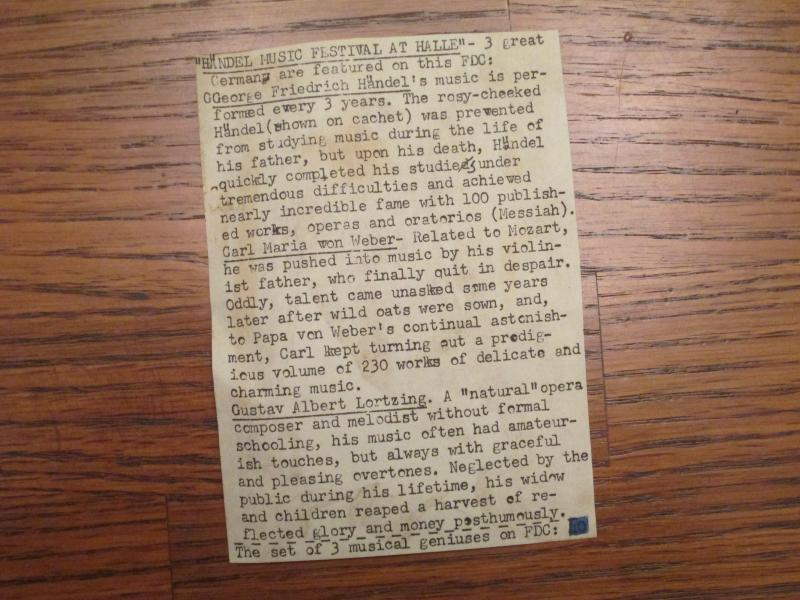 "HÄNDEL MUSIC FESTIVAL AT HALLE"- 3 great
Germans are featured on this FDC:
GGeorge Friedrich Händel's music is per-
formed every 3 years. The rosy-cheeked
Händel(shown on cachet) was prevented
from studying music during the life of
his father, but upon his death, Händel
quickly completed his studies under
tremendous difficulties and achieved
nearly incredible fame with 100 publish-
ed works, operas and oratorios (Messiah).
Carl Maria von Weber- Related to Mozart,
he was pushed into music by his violin-
ist father, who finally quit in despair.
Oddly, talent came unasked some years
later after wild oats were sown, and,
to Papa von Weber's continual astonish-
ment, Carl kept turning out a prodig-
ious volume of 230 works of delicate and
charming music.
Gustav Albert Lortzing. A "natural"opera
composer and melodist without formal
schooling, his music often had amateur-
ish touches, but always with graceful
and pleasing overtones. Neglected by the
public during his lifetime, his widow
and children reaped a harvest of re-
flected glory and money posthumously.
The set of 3 musical geniuses on FDC: